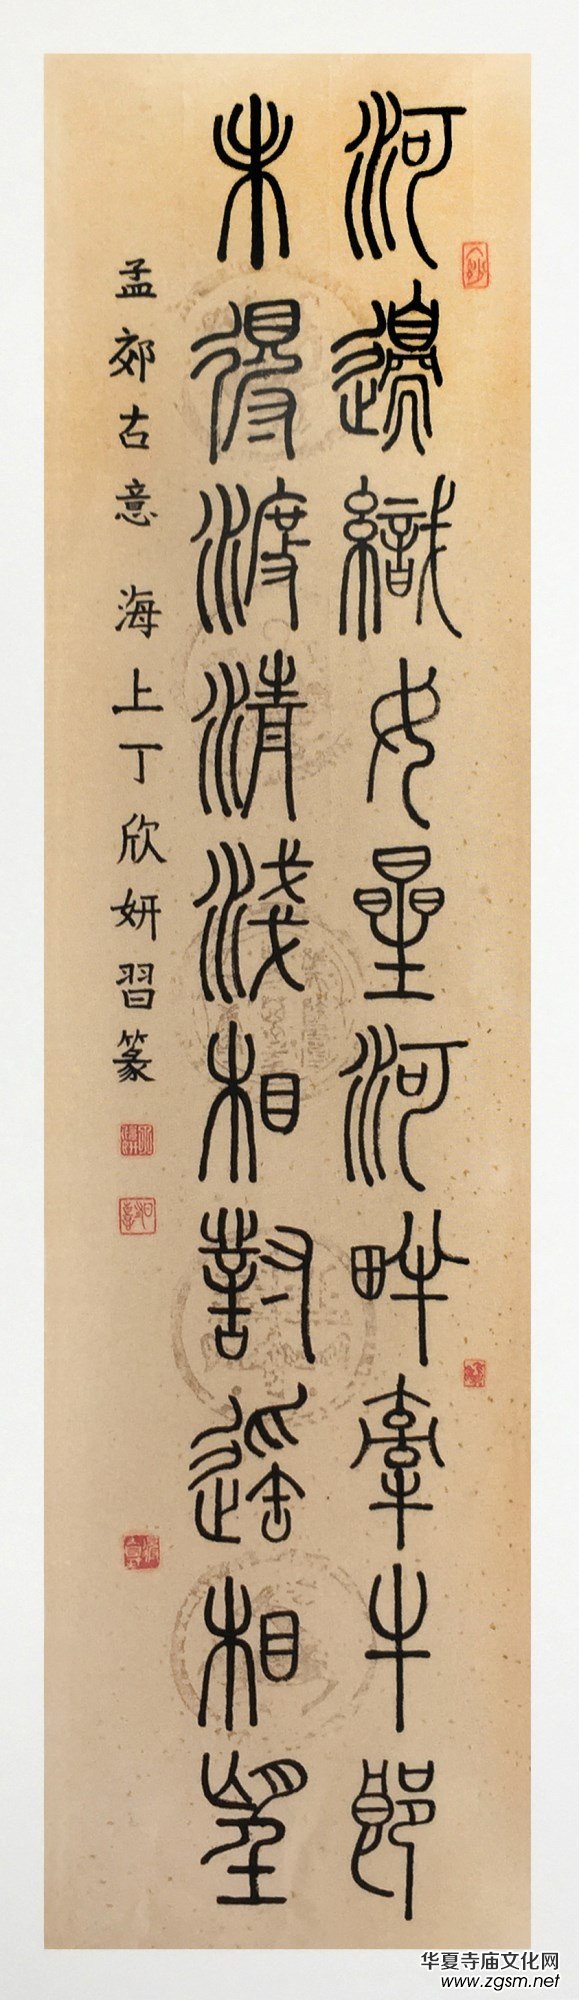 河邊織女星河畔牽牛郎
未得渡清淺相對遙相望
孟郊古意 海上丁欣妍習篆
华夏寺庙文化网
www.zgsm.net